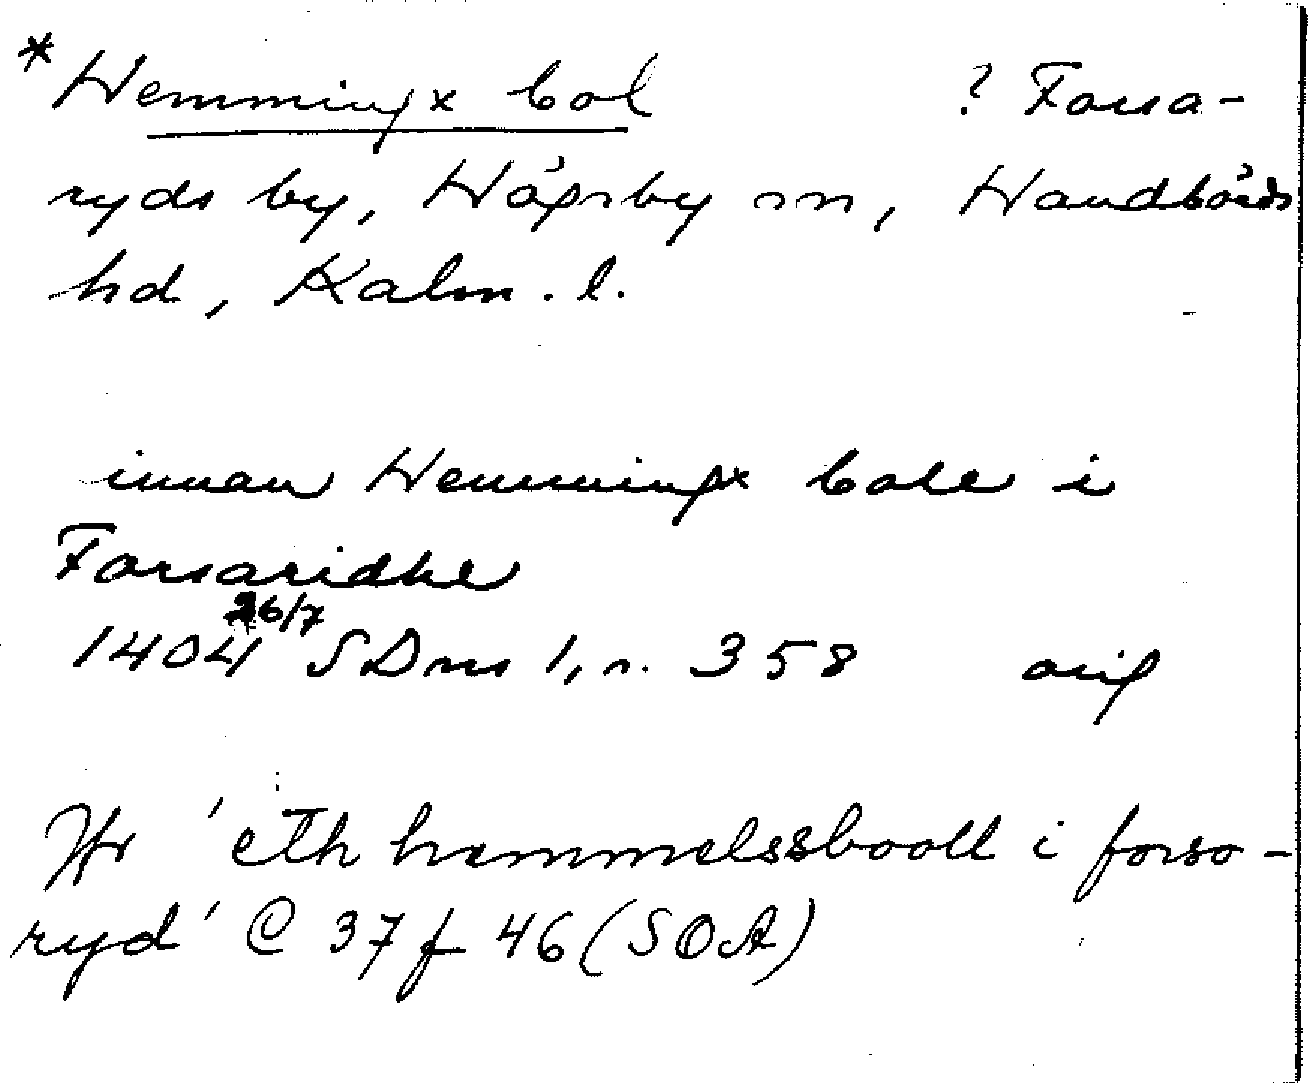 *Hemmingx bol ? Forsa-
ryds by, Högsby sn, Handbörds
hd, Kalm. l.
innan Hemmingx bole i
Forsaridhe
1404 26/7 SDns 1, n. 358 orig
Jfr 'eth hemmelssbooll i forso-
ryd' C 37 f 46 (SOA)